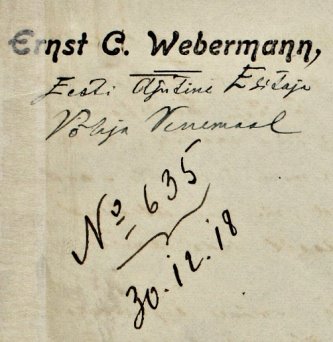 Ernst C. Webermann,
Eesti Ajutine Esitaja
Venemaal
No 635
30.12.18